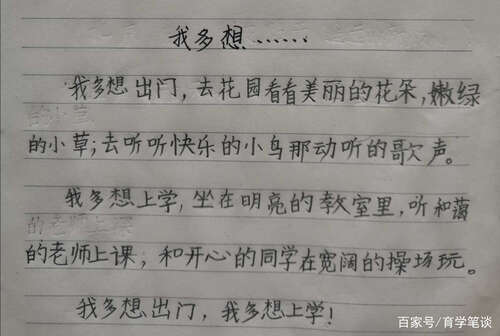 我多想……
我多想出门，去花园看看美丽的花朵，嫩绿
的小草；去听听快乐的小鸟那动听的歌声。
我多想上学，坐在明亮的教室里，听和蔼
的老师上课；和开心的同学在宽阔的操场玩。
我多想出门，我多想上学！
百家号/育学笔谈